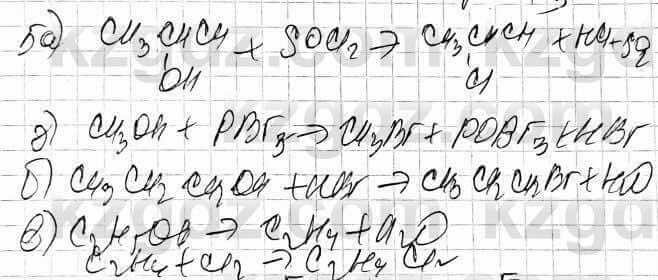 5а) CH3CHCH + SOCl2 → CH3CHCH + HCl + SO2
OH Cl
г) CH3OH + PBr3 → CH3Br + POBr3 + HBr
б) CH3 CH2 CH2OH + HBr → CH3 CH2 CH2Br + H2O
в) C2H5OH → C2H4 + H2O
C2H4 + Cl2 → C2H4 Cl2